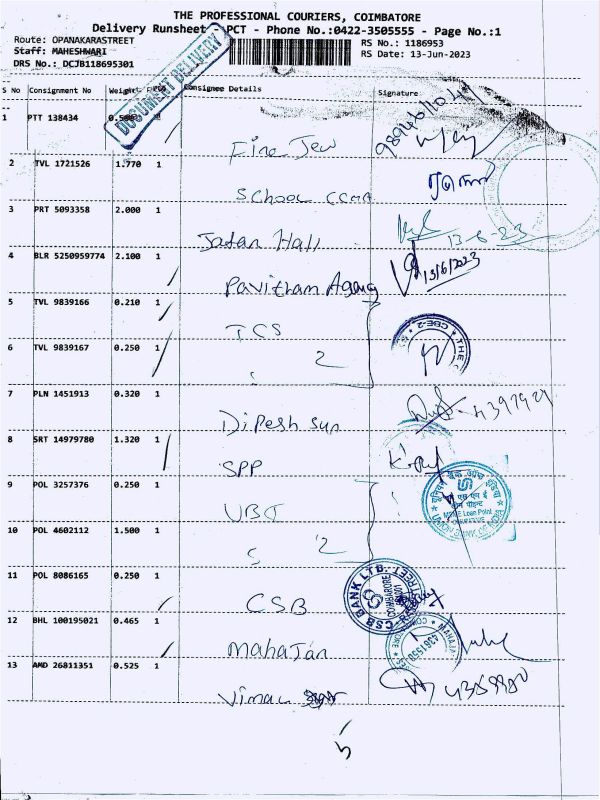 THE PROFESSIONAL COURIERS, COIMBATORE
Delivery Runsheet - PCT - Phone No.:0422-3505555 - Page No.:1
Route: OPANAKARASTREET
RS No.: 1186953
Staff: MAHESHWARI
RS Date: 13-Jun-2023
DRS No.: DCJB118695301
DOCUMENT DELIVERY
S No Consignment No Weight Consignee Details Signature
1 PTT 138434 Fine Jew
2 TVL 1721526 1.770 1 School
3 PRT 5093358 2.000 1 Jatan Hall 13-6-23
4 BLR 5250959774 2.100 1 Pavitham Agency 13/6/2023
5 TVL 9839166 0.210 1 TCS
6 TVL 9839167 0.250 1 2
7 PLN 1451913 0.320 1 Dipesh sun
8 SRT 14979780 1.320 1 SPP
9 POL 3257376 0.250 1 UBI
UNION BANK OF INDIA
10 POL 4602112 1.500 1 2
11 POL 8086165 0.250 1 CSB
CSB BANK LTD.
12 BHL 100195021 0.465 1 Mahajan
13 AMD 26811351 0.525 1 Vimal